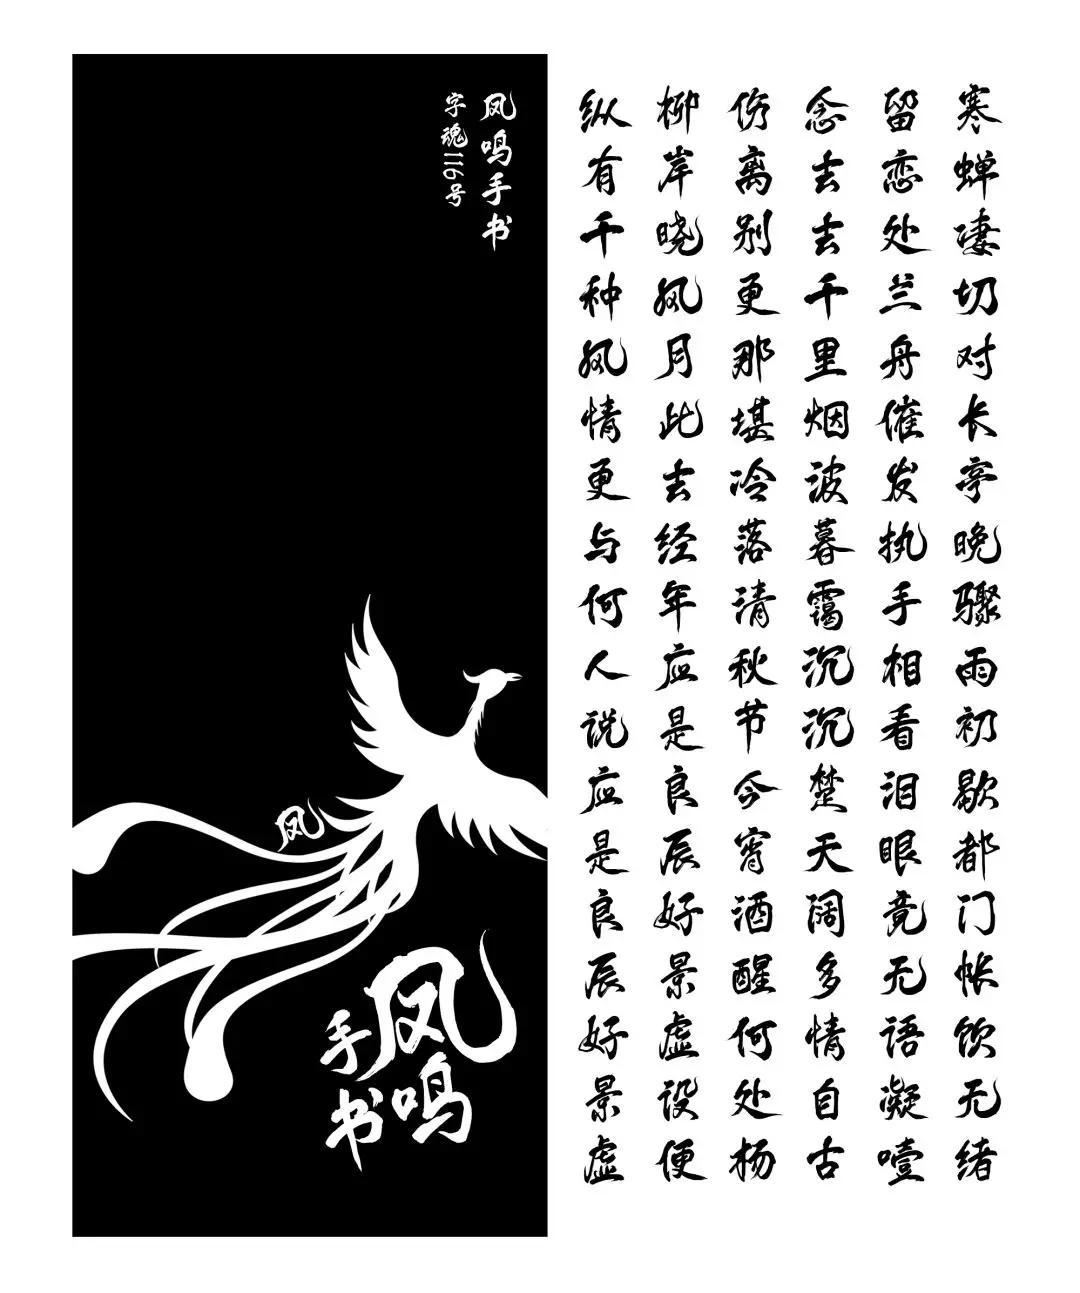 凤鸣手书
字魂116号
凤
凤鸣
手书
寒蝉凄切对长亭晚骤雨初歇都门帐饮无绪
留恋处兰舟催发执手相看泪眼竟无语凝噎
念去去千里烟波暮霭沉沉楚天阔多情自古
伤离别更那堪冷落清秋节今宵酒醒何处杨
柳岸晓风月此去经年应是良辰好景虚设便
纵有千种风情更与何人说应是良辰好景虚